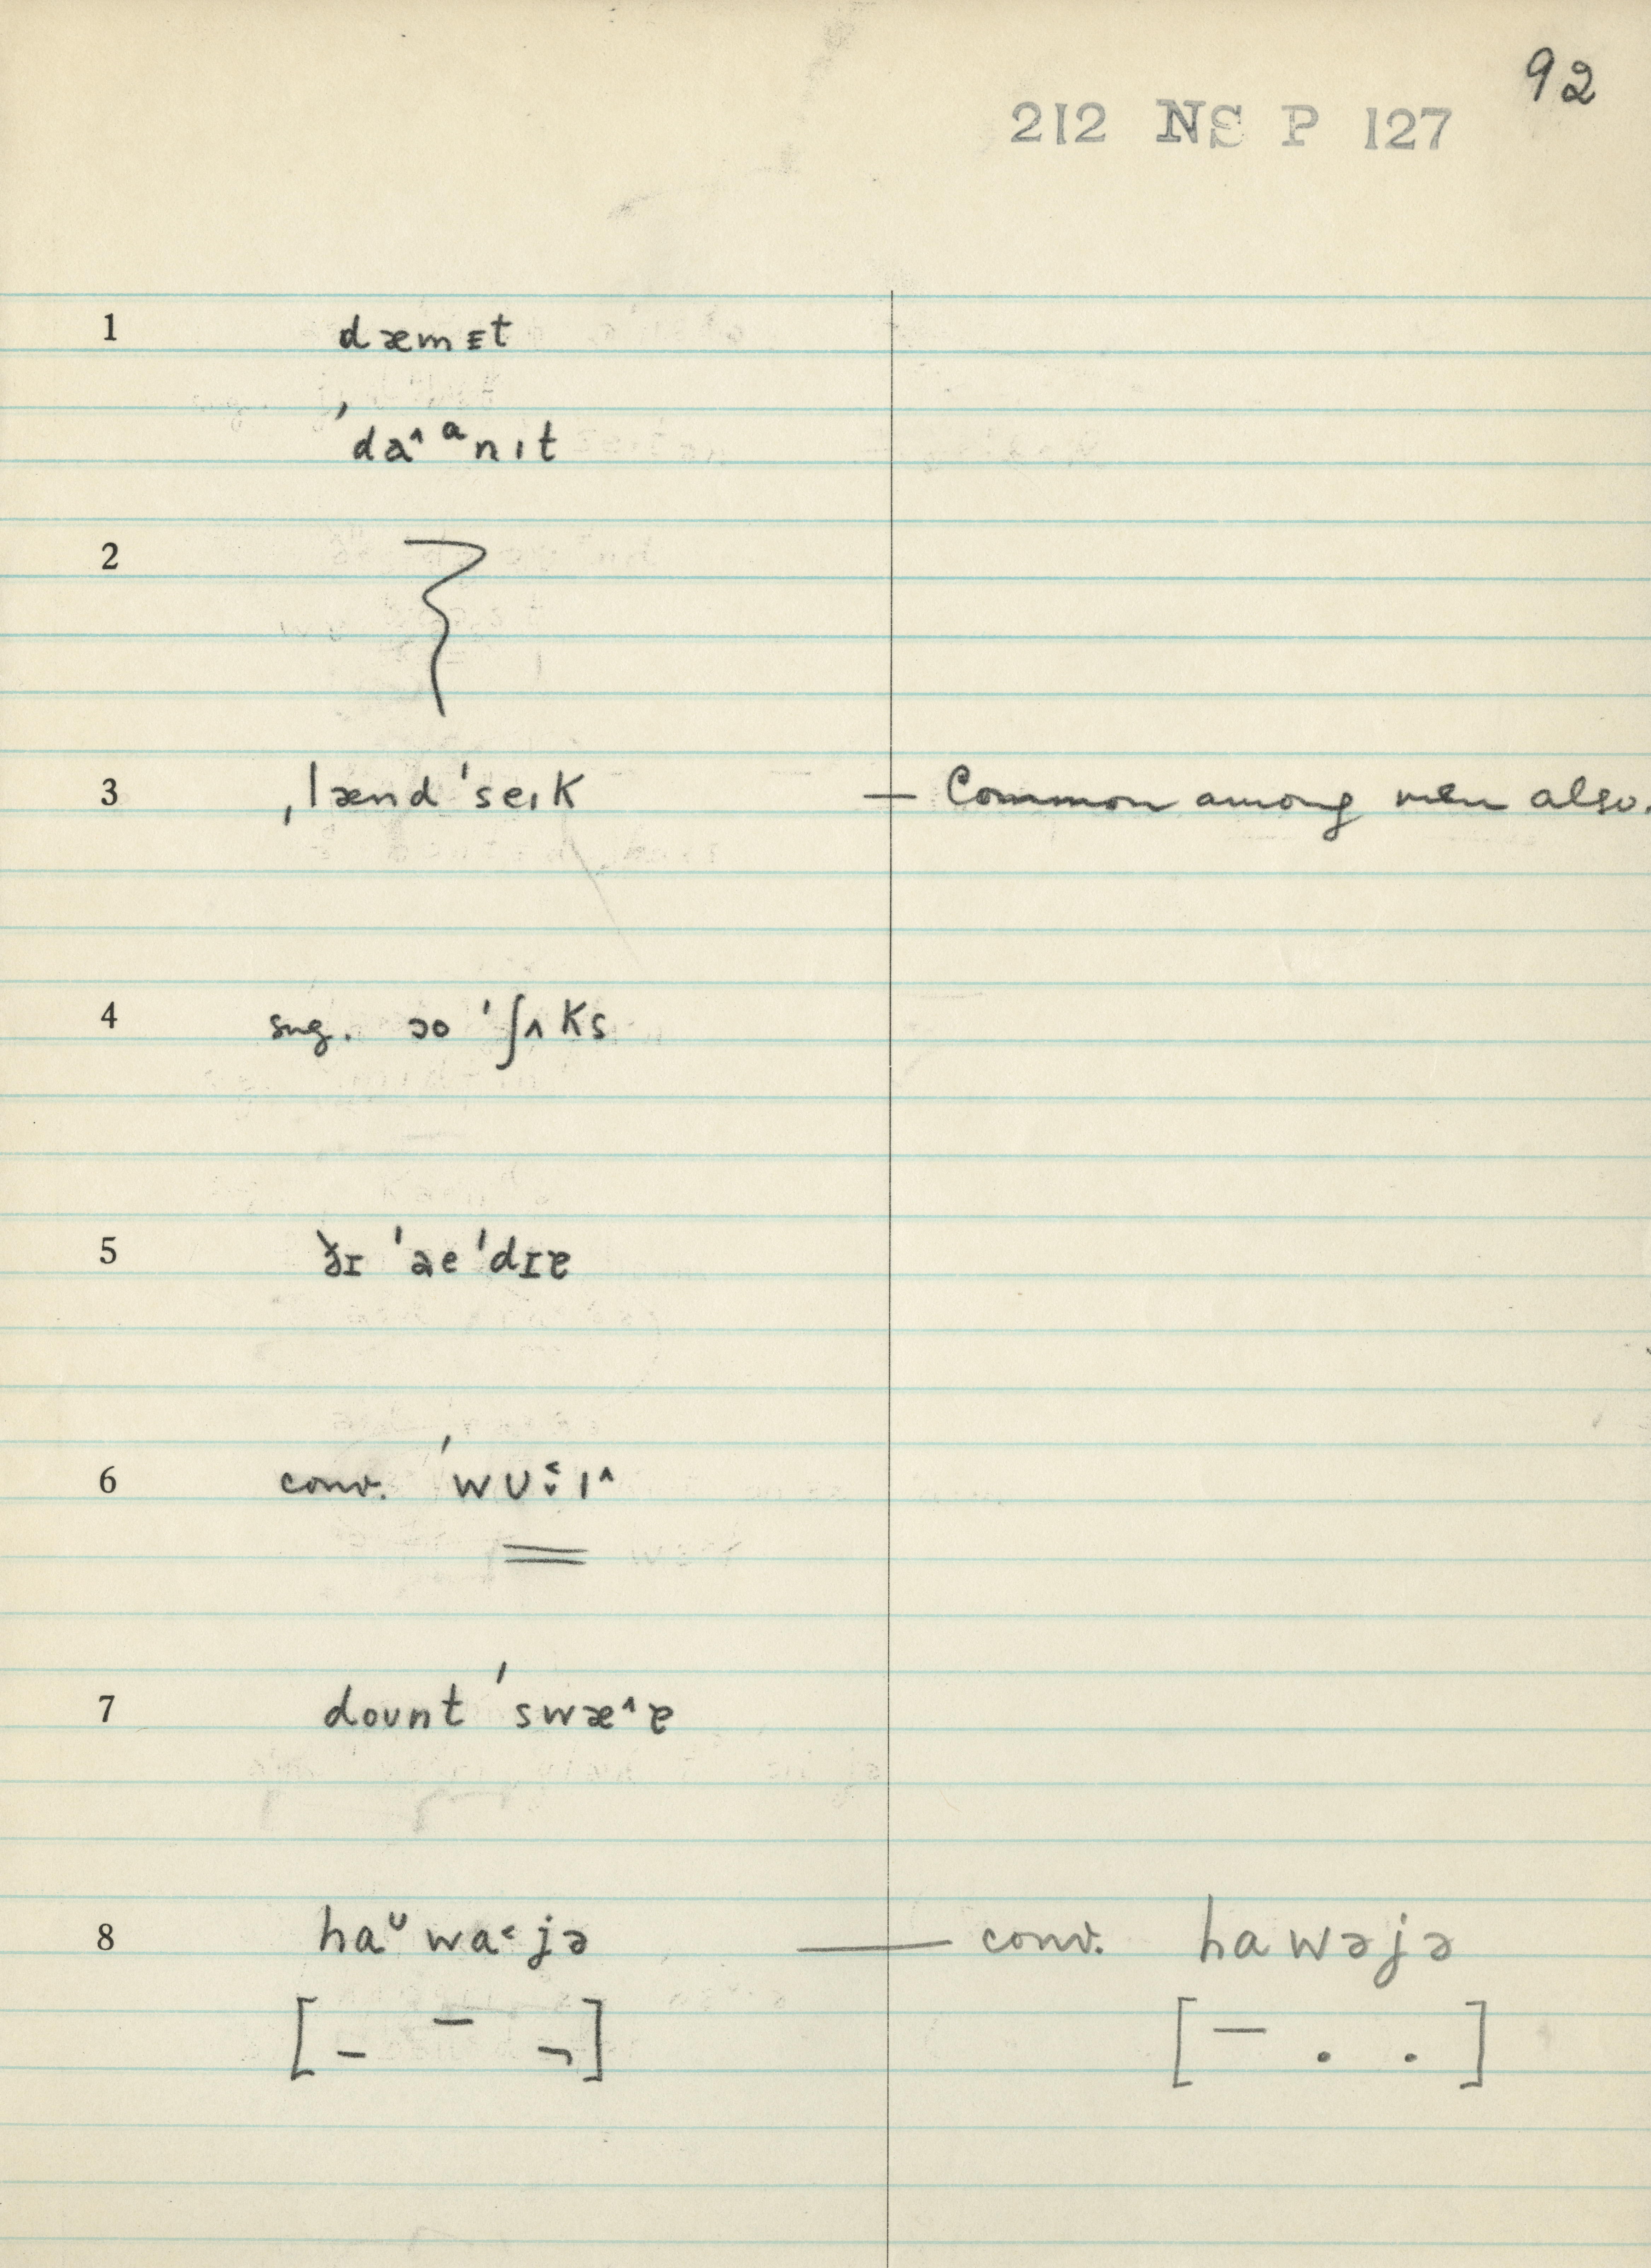 92
212 NS P 127
1 dæmɪt
ˈda^ᵅnɪt
2
3 ˌlænd ˈseɪk — Common among men also.
4 sug. ɔo ˈʃʌks
5 ðɪ ˈaeˈdɪɐ
6 conv. ˈwʊ˂ːɪ^
7 dount ˈswæ^ɐ
8 haᶷwa˂jə — conv. hawəjə
[ – – ¬ ] [ – . . ]